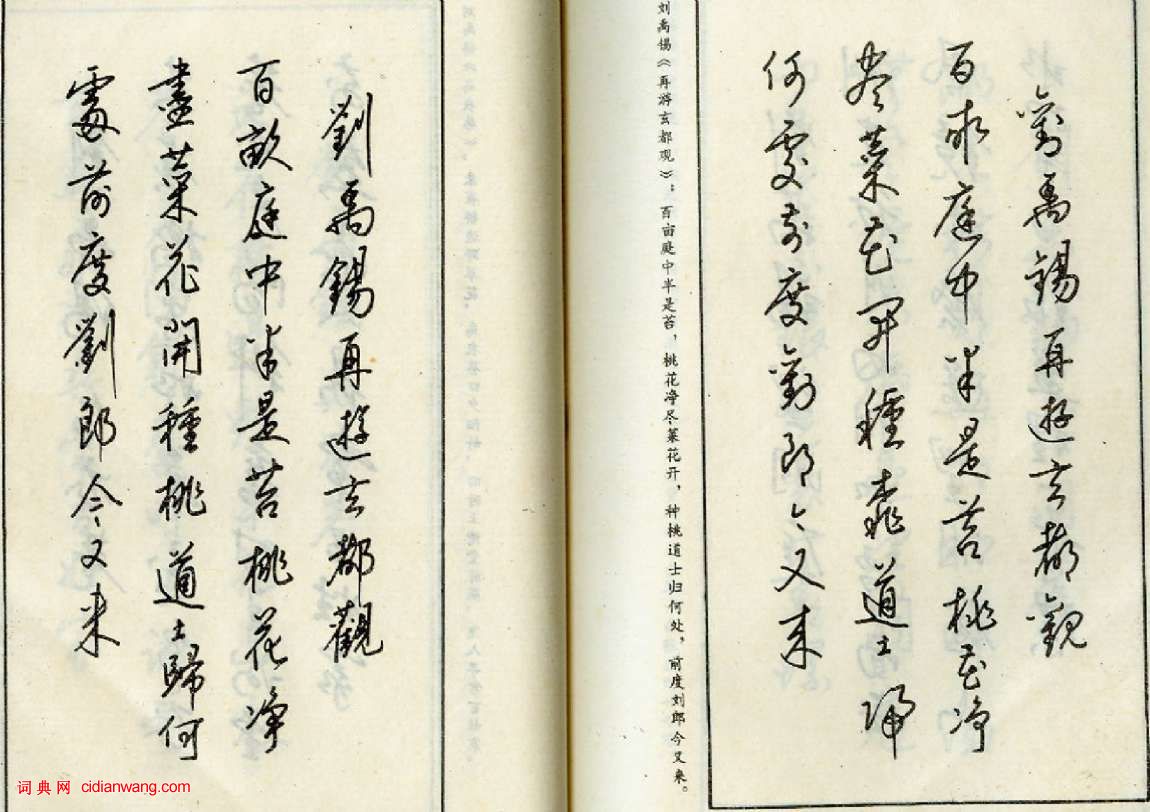 劉禹锡再遊玄都觀
百畝庭中半是苔桃花净
尽菜花开種桃道士归
何處前度劉郎今又来
刘禹锡《再游玄都观》：百亩庭中半是苔，桃花净尽菜花开，种桃道士归何处，前度刘郎今又来。
劉禹錫再遊玄都觀
百畝庭中半是苔桃花净
盡菜花開種桃道士歸何
處前度劉郎今又来
词典网 cidianwang.com